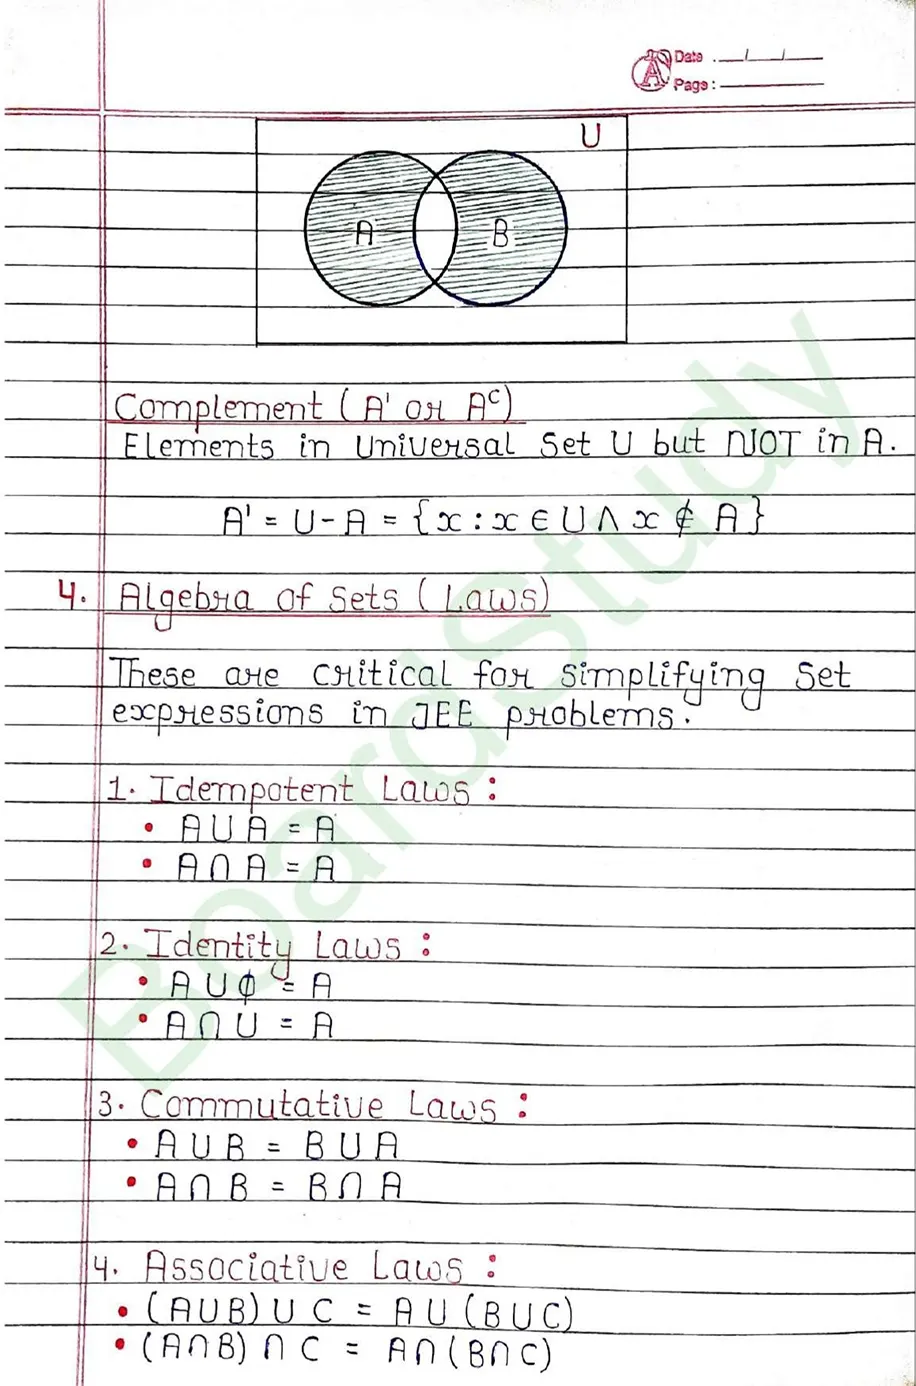 Date
Page :
U
A B
Complement (A' or Aᶜ)
Elements in Universal Set U but NOT in A.
A' = U - A = {x : x ∈ U ∧ x ∉ A}
4. Algebra of Sets (Laws)
These are critical for simplifying Set
expressions in JEE problems.
1. Idempotent Laws :
• A ∪ A = A
• A ∩ A = A
2. Identity Laws :
• A ∪ ϕ = A
• A ∩ U = A
3. Commutative Laws :
• A ∪ B = B ∪ A
• A ∩ B = B ∩ A
4. Associative Laws :
• (A ∪ B) ∪ C = A ∪ (B ∪ C)
• (A ∩ B) ∩ C = A ∩ (B ∩ C)
BoardStudy